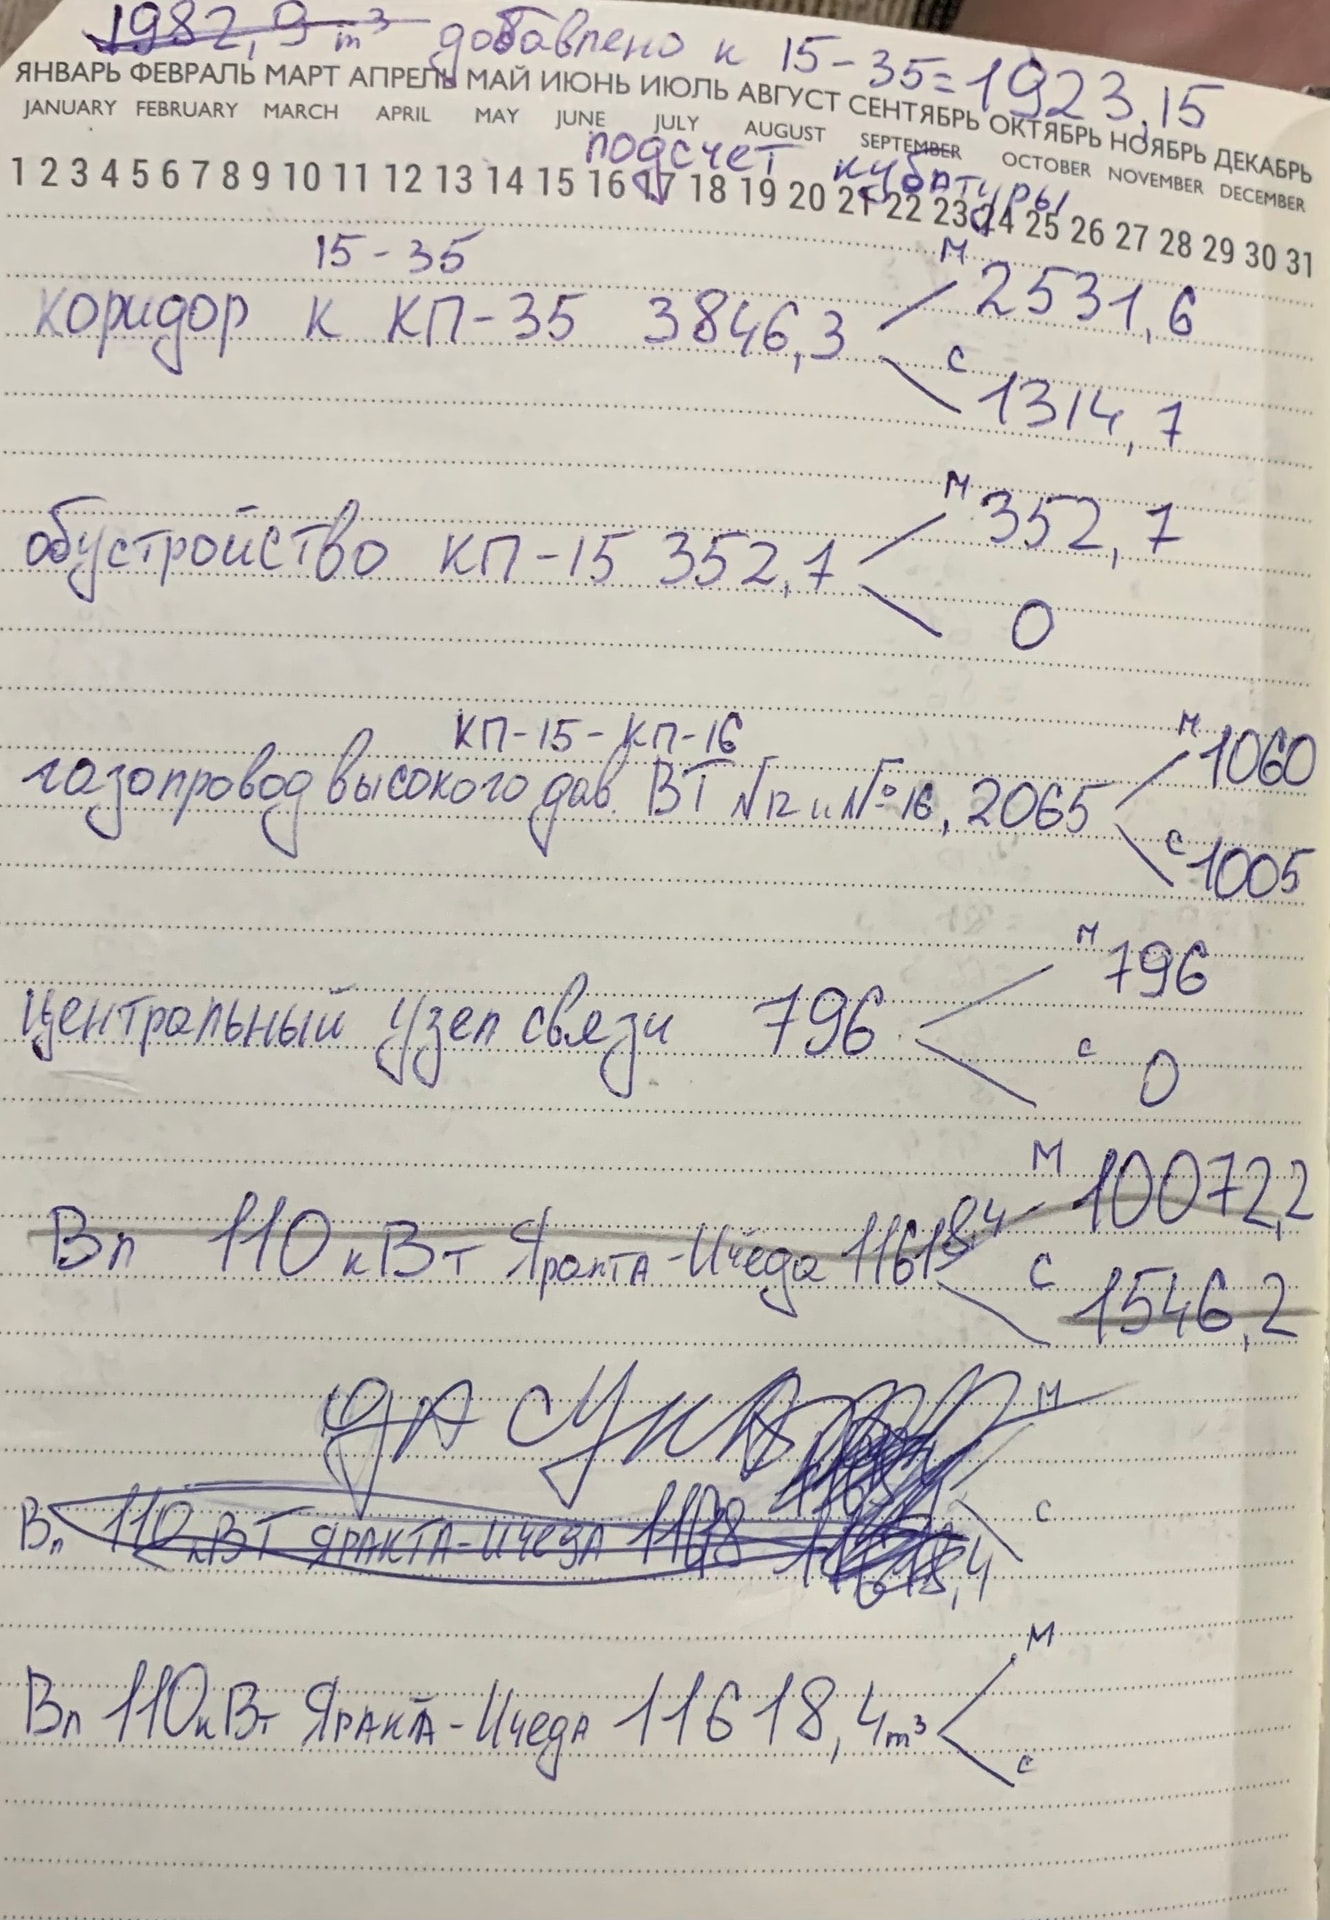 1982,9 m³ добавлено к 15-35=1923,15
ЯНВАРЬ ФЕВРАЛЬ МАРТ АПРЕЛЬ МАЙ ИЮНЬ ИЮЛЬ АВГУСТ СЕНТЯБРЬ ОКТЯБРЬ НОЯБРЬ ДЕКАБРЬ
JANUARY FEBRUARY MARCH APRIL MAY JUNE JULY AUGUST SEPTEMBER OCTOBER NOVEMBER DECEMBER
подсчет кубатуры
1 2 3 4 5 6 7 8 9 10 11 12 13 14 15 16 17 18 19 20 21 22 23 24 25 26 27 28 29 30 31
15-35
коридор к КП-35 3846,3
м 2531,6
с 1314,7
обустройство КП-15 352,7
м 352,7
0
КП-15-КП-16
газопровод высокого дав. ВТ №12 и №16, 2065
м 1060
с 1005
центральный узел связи 796
м 796
с 0
Вл 110 кВт Яракта-Ичёда 11618,4
М 10072,2
С 1546,2
М
Вл 110 кВТ ЯРАКТА-ИЧЕДА 11618
с
Вл 110кВт ЯРАКТА-ИчедА 11618,4m³
м
с